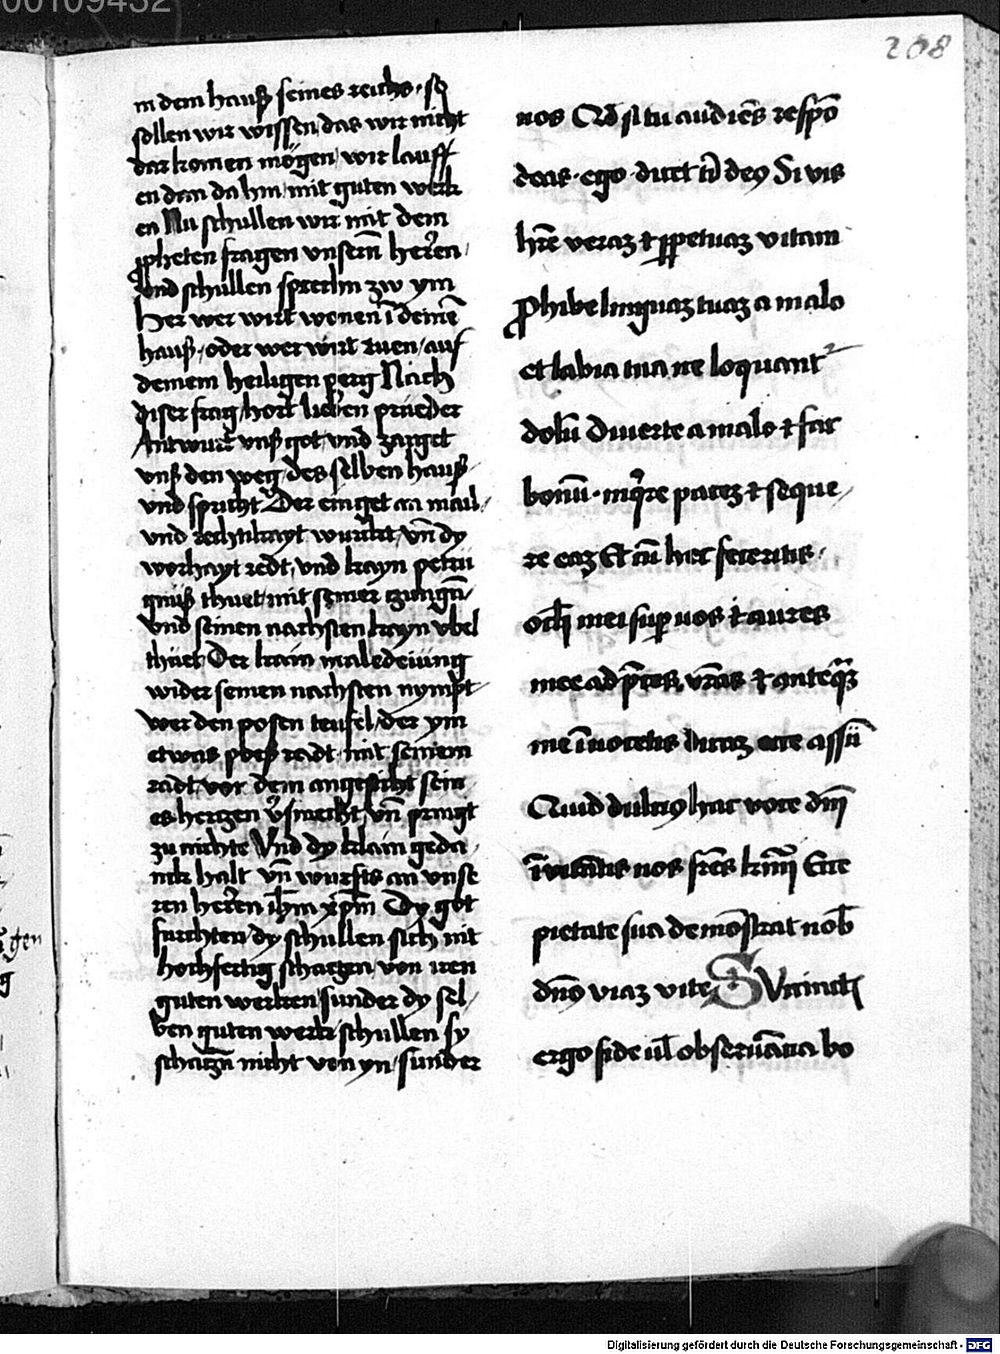 00109452
208
in dem hauß seines reichs · so
sollen wir wissen das wir nicht
dar komen mögen / wir lauff
en dan da hin / mit guten werk
en Nu schullen wir mit dem
propheten fragen unsern̄ herren
vnd schullen sprechn zw ym
Her wer wirt wonen ī deinē
hauß / oder wer wirt ruen / auf
deinem heiligen perg Nach
diser frag / hort lieben prüeder
Antwurt vnß got / vnd zaiget
vnß den weg / des selben hauß
vnd spricht Der einget an mail /
vnd rechtikayt wurckt / vn̄ dy
worhayt redt / vnd kayn petrü
gnüß thuet / mit seiner tzungn̄ /
Vnd seinen nachsten kayn vbel
thuet Der kain maledeiung
wider seinen nachsten nympt
wer den posen teufel / der ym
etwas poeß radt / mit seinem
radt / vor dem angesicht sein
es hertzen v̓smecht / vn̄ pringt
zu nichte Vnd dy klain geda /
nck halt vn̄ wurfts an vnse
ren herren ih̄m xp̄m Dy got
furchten / dy schullen sich nit
hochfertig schaczen / von iren
guten werken / sunder dy sel /
ben guten werk / schullen sy
schaczn̄ nicht von yn / sunder
nos Qd̓ si tu audiēs respō
deas · ego · dicit ti dey Si vis
hr̄e veraz & ꝑpetuaz vitam
Prohibe linguaz tuaz a malo
et labia tua ne loquant᷒
dolū Diuerte a malo & fac
bonū · inq̓re pacez & seque /
re eaz Et cū hec feceritis ·
ocl̄i mei sup̱ uos & aures
mee ad p̄ces vr̄as & anteq̄z
me īuocetis dicaz ecce assū
Quid dulciꝰ hac voce dn̄i
īvitātis nos fr̄es kmi Ecce
pietate sua demōstrat nob̄
dn̄s viaz vite Succinctis
ergo fide ul̓ obseruātia bo
Digitalisierung gefördert durch die Deutsche Forschungsgemeinschaft - DFG